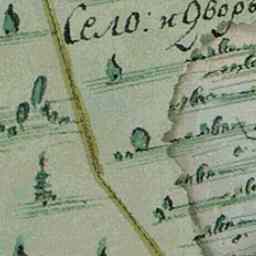 Село: и Дворъ